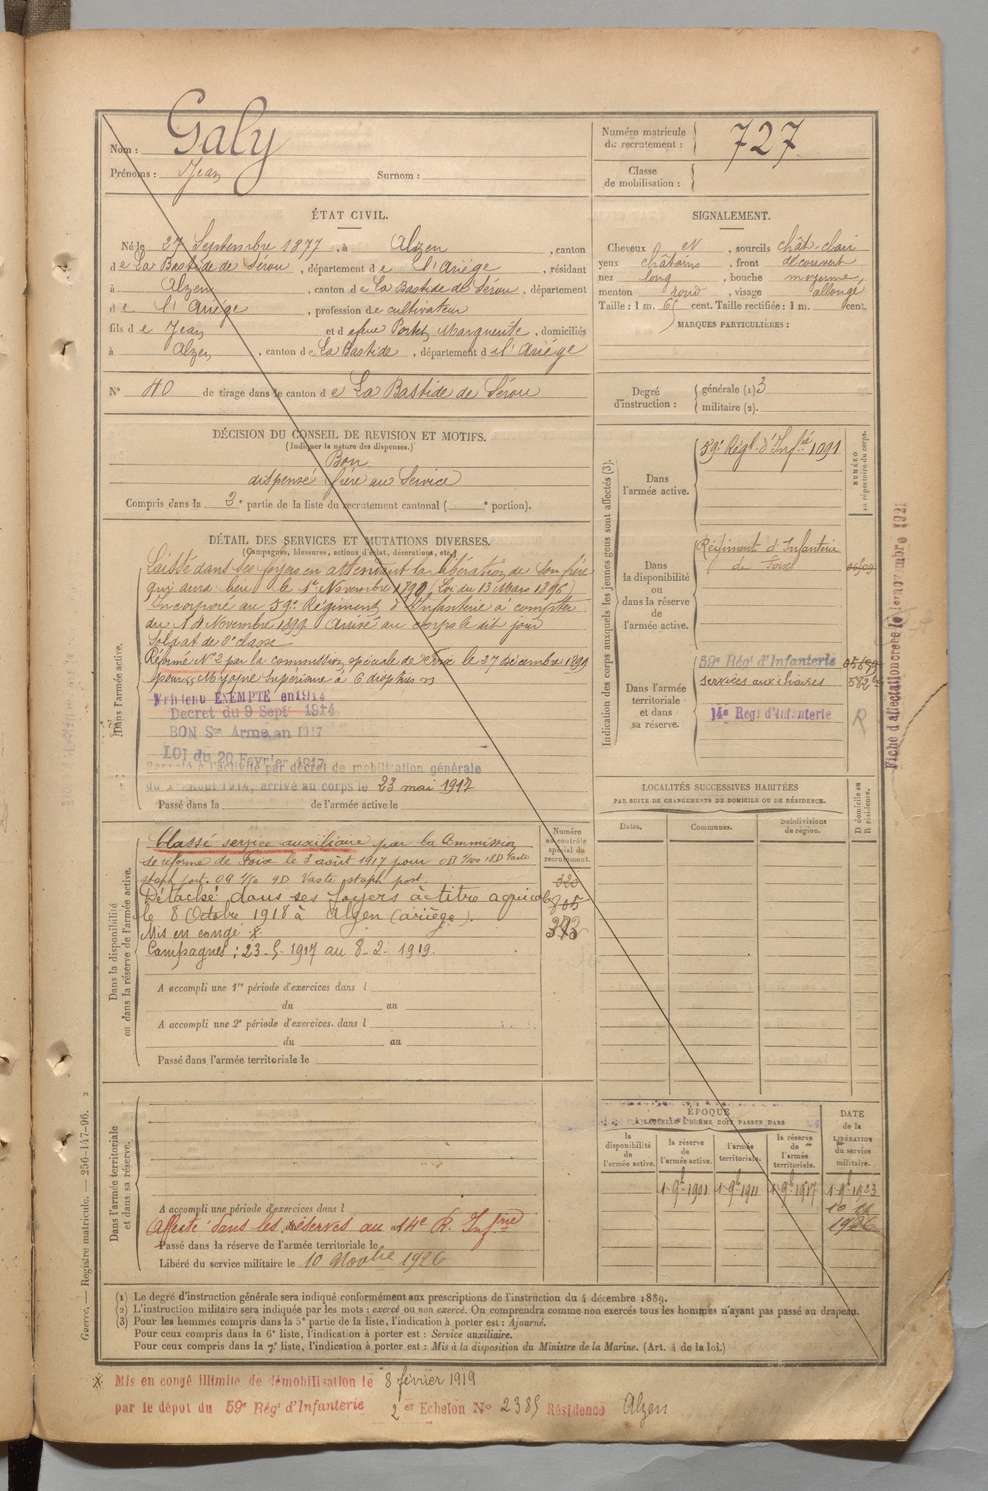 Nom : Galy
Prénoms : Jean Surnom :
Numéro matricule du recrutement : 727
Classe de mobilisation :
ÉTAT CIVIL.
Né le 27 Septembre 1877, à Alzen, canton
de La Bastide de Sérou, département de l'Ariège, résidant
à Alzen, canton de La Bastide de Sérou, département
de l'Ariège, profession de cultivateur
fils de Jean et de feue Portet Marguerite, domiciliés
à Alzen, canton de La Bastide, département de l'Ariège
N° 40 de tirage dans le canton de La Bastide de Sérou
SIGNALEMENT.
Cheveux et, sourcils chât. clair
yeux châtains, front découvert
nez long, bouche moyenne,
menton rond, visage allongé
Taille : 1 m. 65 cent. Taille rectifiée : 1 m. cent.
MARQUES PARTICULIÈRES :
Degré d'instruction : générale (1) 3
militaire (2).
DÉCISION DU CONSEIL DE REVISION ET MOTIFS.
(Indiquer la nature des dispenses.)
Bon
dispensé frère au Service
Compris dans la 2e partie de la liste du recrutement cantonal ( e portion).
DÉTAIL DES SERVICES ET MUTATIONS DIVERSES.
(Campagnes, blessures, actions d'éclat, décorations, etc.)
Dans l'armée active.
Laissé dans ses foyers en attendant la libération de son frère
qui aura lieu le 1er Novembre 1899 (Loi du 13 Mars 1896)
Incorporé au 59e Régiment d'Infanterie à compter
du Novembre 1899 Arrivé au corps le dit jour
Soldat de 2e classe
Réformé N°2 par la commission spéciale de Foix le 27 Décembre 1899
pour Myopie supérieure à 6 dioptries
Maintenu EXEMPTÉ en 1914
Décret du 9 Sept 1914
BON Sce Armé, an 1917
LOI du 20 Février 1917
Rappelé à l'activité par décret de mobilisation générale
du 1er Août 1914, arrivé au corps le 23 mai 1917
Passé dans la de l'armée active le
Indication des corps auxquels les jeunes gens sont affectés (3).
NUMÉRO au répertoire du corps.
Dans l'armée active.
59e Régt d'Infie 1091
Dans la disponibilité ou dans la réserve de l'armée active.
Régiment d'Infanterie
de Foix
Dans l'armée territoriale et dans sa réserve.
59e Régt d'Infanterie
Services auxiliaires
14e Régt d'Infanterie R
Fiche d'affectation créée le 1er novembre 1921
LOCALITÉS SUCCESSIVES HABITÉES
PAR SUITE DE CHANGEMENTS DE DOMICILE OU DE RÉSIDENCE.
Dates. Communes. Subdivisions de région. D domicile ou R résidence.
Dans la disponibilité ou dans la réserve de l'armée active.
Numéro au contrôle spécial du recrutement.
Classé service auxiliaire par la Commission
de réforme de Foix le 3 août 1917 pour OD 1/100 18D Vaste
staph post. OG 1/10 9D Vaste staph post.
Détaché dans ses foyers à titre agricole
305
le 8 Octobre 1918 à Alzen (ariège).
Mis en congé x.
373
Campagnes : 23-5-1917 au 8-2-1919.
A accompli une 1re période d'exercices dans l
du au
A accompli une 2e période d'exercices dans l
du au
Passé dans l'armée territoriale le
Dans l'armée territoriale et dans sa réserve.
A accompli une période d'exercices dans l
Affecté dans les réserves au 14e R. Infrie
Passé dans la réserve de l'armée territoriale le
Libéré du service militaire le 10 Novbre 1926
ÉPOQUE
À LAQUELLE L'HOMME DOIT PASSER DANS
la disponibilité de l'armée active. la réserve de l'armée active. l'armée territoriale. la réserve de l'armée territoriale. DATE de la LIBÉRATION du service militaire.
1-9bre-1901 1-9bre-1911 1-9bre-1917 1-9bre-1923
1926
(1) Le degré d'instruction générale sera indiqué conformément aux prescriptions de l'instruction du 4 décembre 1889.
(2) L'instruction militaire sera indiquée par les mots : exercé ou non exercé. On comprendra comme non exercés tous les hommes n'ayant pas passé au drapeau.
(3) Pour les hommes compris dans la 5e partie de la liste, l'indication à porter est : Ajourné.
Pour ceux compris dans la 6e liste, l'indication à porter est : Service auxiliaire.
Pour ceux compris dans la 7e liste, l'indication à porter est : Mis à la disposition du Ministre de la Marine. (Art. 4 de la loi.)
Guerre. — Registre matricule. — 256-147-96. 2
x Mis en congé illimité de démobilisation le 8 février 1919
par le dépôt du 59e Régt d'Infanterie 2er Echelon N° 2385 Résidence Alzen